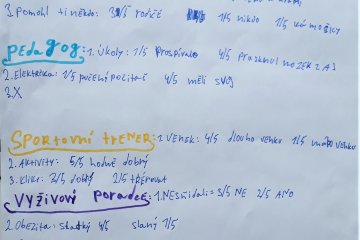 3. Pomohl ti někdo: 3/5 rodiče 1/5 nikdo 1/5
PEDAGOG: 1. Úkoly: 1/5 Prospívalo 4/5 Prasknul mozek z AJ
2. Elektřika: 1/5 půčený počítač 4/5 měli svůj
3. X
SPORTOVNÍ TRENÉR: 1. Venek: 4/5 dlouho venku 1/5 málo venku
2. Aktivity: 5/5 hodně dobrý
3. Kliky: 3/5 dobrý 2/5 trénovat
VÝŽIVOVÝ PORADCE: 1. Nesnídali: 3/5 NE 2/5 ANO
2. Obezita: sladký 4/5 slaný 1/5